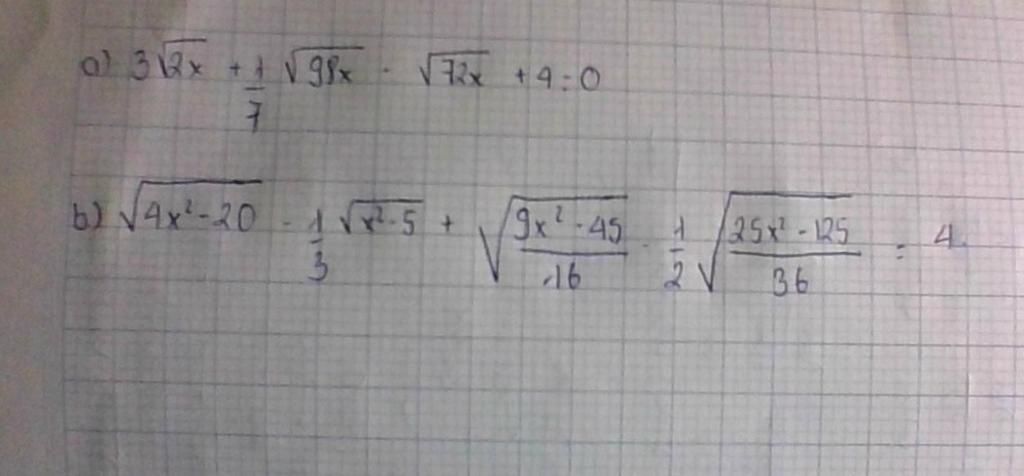 a) 3√2x + 1/7 √98x - √72x + 4 = 0
b) √4x² - 20 - 1/3 √x² - 5 + √(9x² - 45)/16 - 1/2 √(25x² - 125)/36 = 4